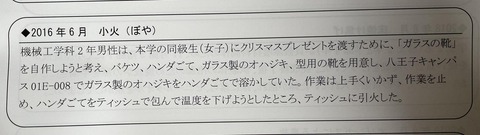 ◆2016年6月 小火（ぼや）
機械工学科2年男性は、本学の同級生（女子）にクリスマスプレゼントを渡すために、「ガラスの靴」
を自作しようと考え、バケツ、ハンダごて、ガラス製のオハジキ、型用の靴を用意し、八王子キャンパ
ス01E-008でガラス製のオハジキをハンダごてで溶かしていた。作業は上手くいかず、作業を止
め、ハンダごてをティッシュで包んで温度を下げようとしたところ、ティッシュに引火した。